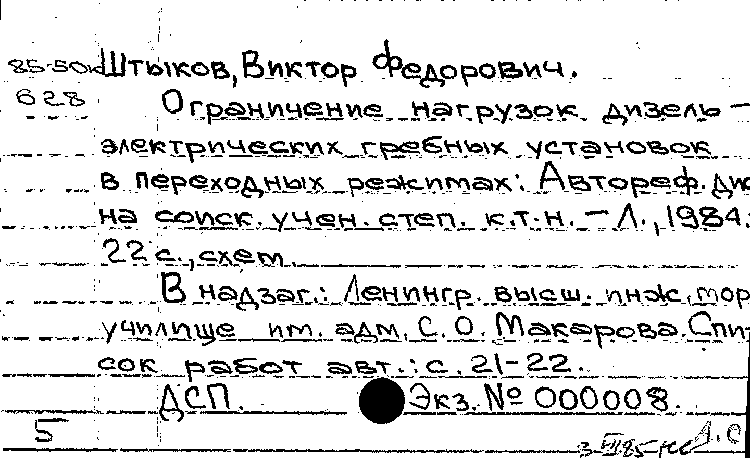 85-50к Штыков, Виктор Федорович.
628 Ограничение нагрузок дизель-
электрических гребных установок
в переходных режимах: Автореф. дис
на соиск. учен. степ. к.т.н. – Л., 1984.
22 с., схем.
В надзаг.: Ленингр. высш. инж. мор.
училище им. адм. С. О. Макарова. Спи-
сок работ авт.: с. 21-22.
ДСП. Экз. № 000008.
5